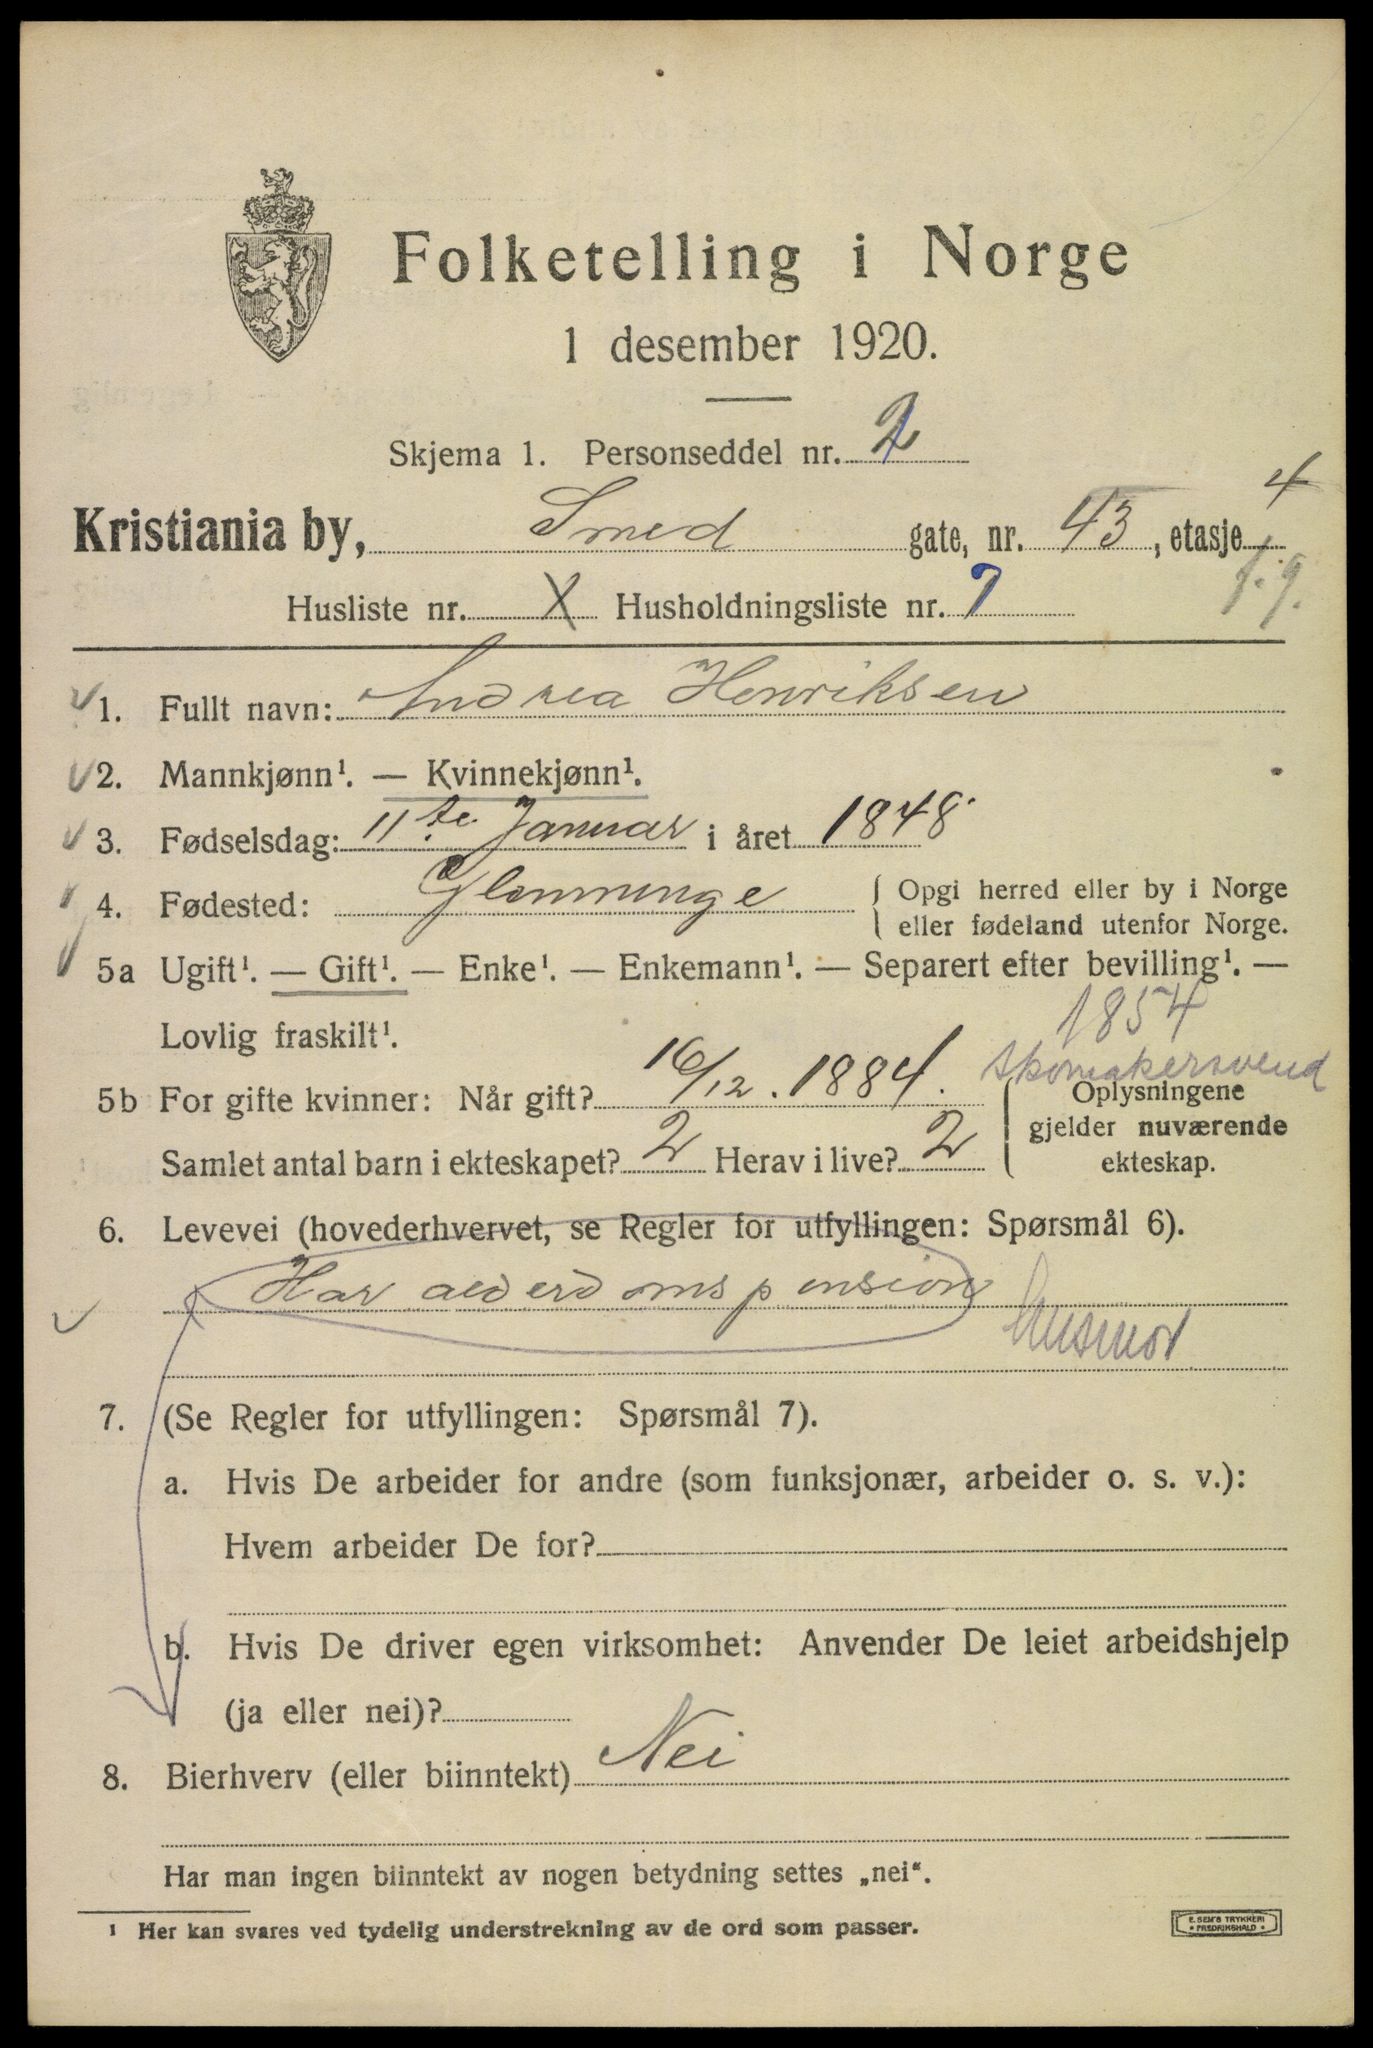 Folketelling i Norge
1 desember 1920.
Skjema 1. Personseddel nr. 2
Kristiania by, Smed gate, nr. 43, etasje 4
Husliste nr. X Husholdningsliste nr. 7
1. Fullt navn: Andrea Henriksen
2. Mannkjønn¹. — Kvinnekjønn¹.
3. Fødselsdag: 11te Januar i året 1848.
4. Fødested: Glemminge { Opgi herred eller by i Norge
eller fødeland utenfor Norge.
5a Ugift¹. — Gift¹. — Enke¹. — Enkemann¹. — Separert efter bevilling¹. —
Lovlig fraskilt¹.
1854
skomakersvend
5b For gifte kvinner: Når gift? 16/12. 1884. Oplysningene
gjelder nuværende
ekteskap.
Samlet antal barn i ekteskapet? 2 Herav i live? 2
6. Levevei (hovederhvervet, se Regler for utfyllingen: Spørsmål 6).
Har alderdomspension
Husmor
7. (Se Regler for utfyllingen: Spørsmål 7).
a. Hvis De arbeider for andre (som funksjonær, arbeider o. s. v.):
Hvem arbeider De for?
b. Hvis De driver egen virksomhet: Anvender De leiet arbeidshjelp
(ja eller nei)?
8. Bierhverv (eller biinntekt) Nei
Har man ingen biinntekt av nogen betydning settes „nei“.
¹ Her kan svares ved tydelig understrekning av de ord som passer.
E. SEM'S TRYKKERI
* FREDRIKSHALD *